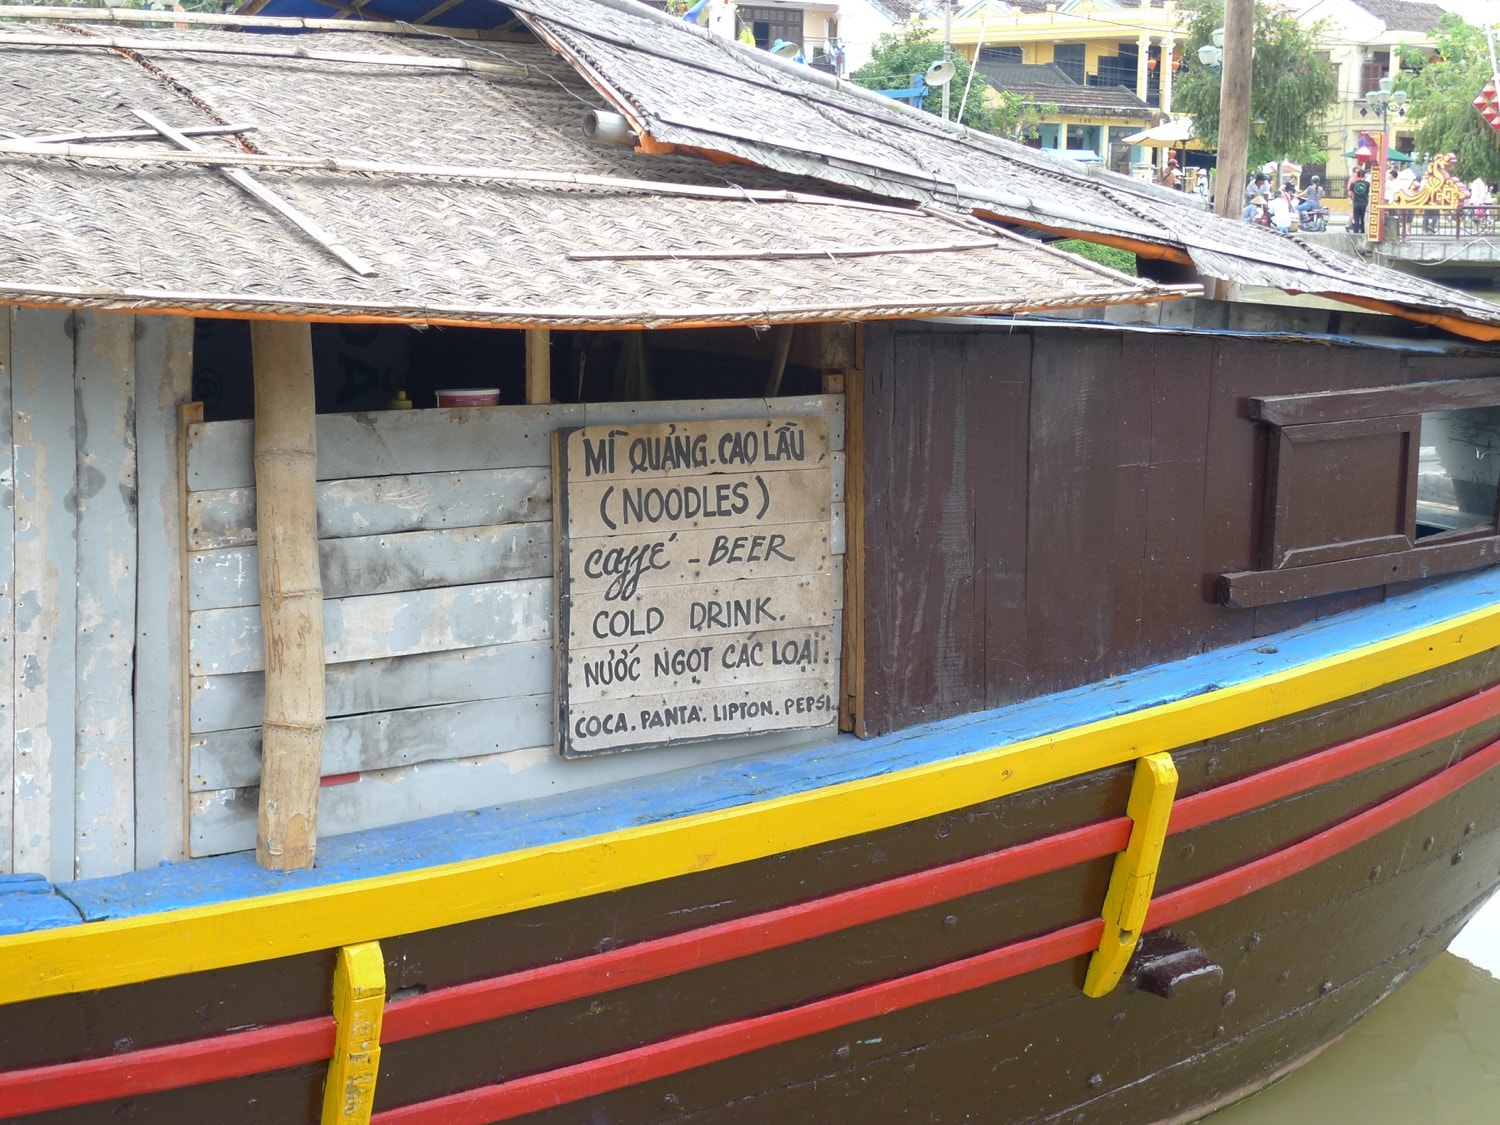 MÌ QUẢNG. CAO LẦU
(NOODLES)
Caffé - BEER
COLD DRINK.
NƯỚC NGỌT CÁC LOẠI:
COCA. PANTA. LIPTON. PEPSI.